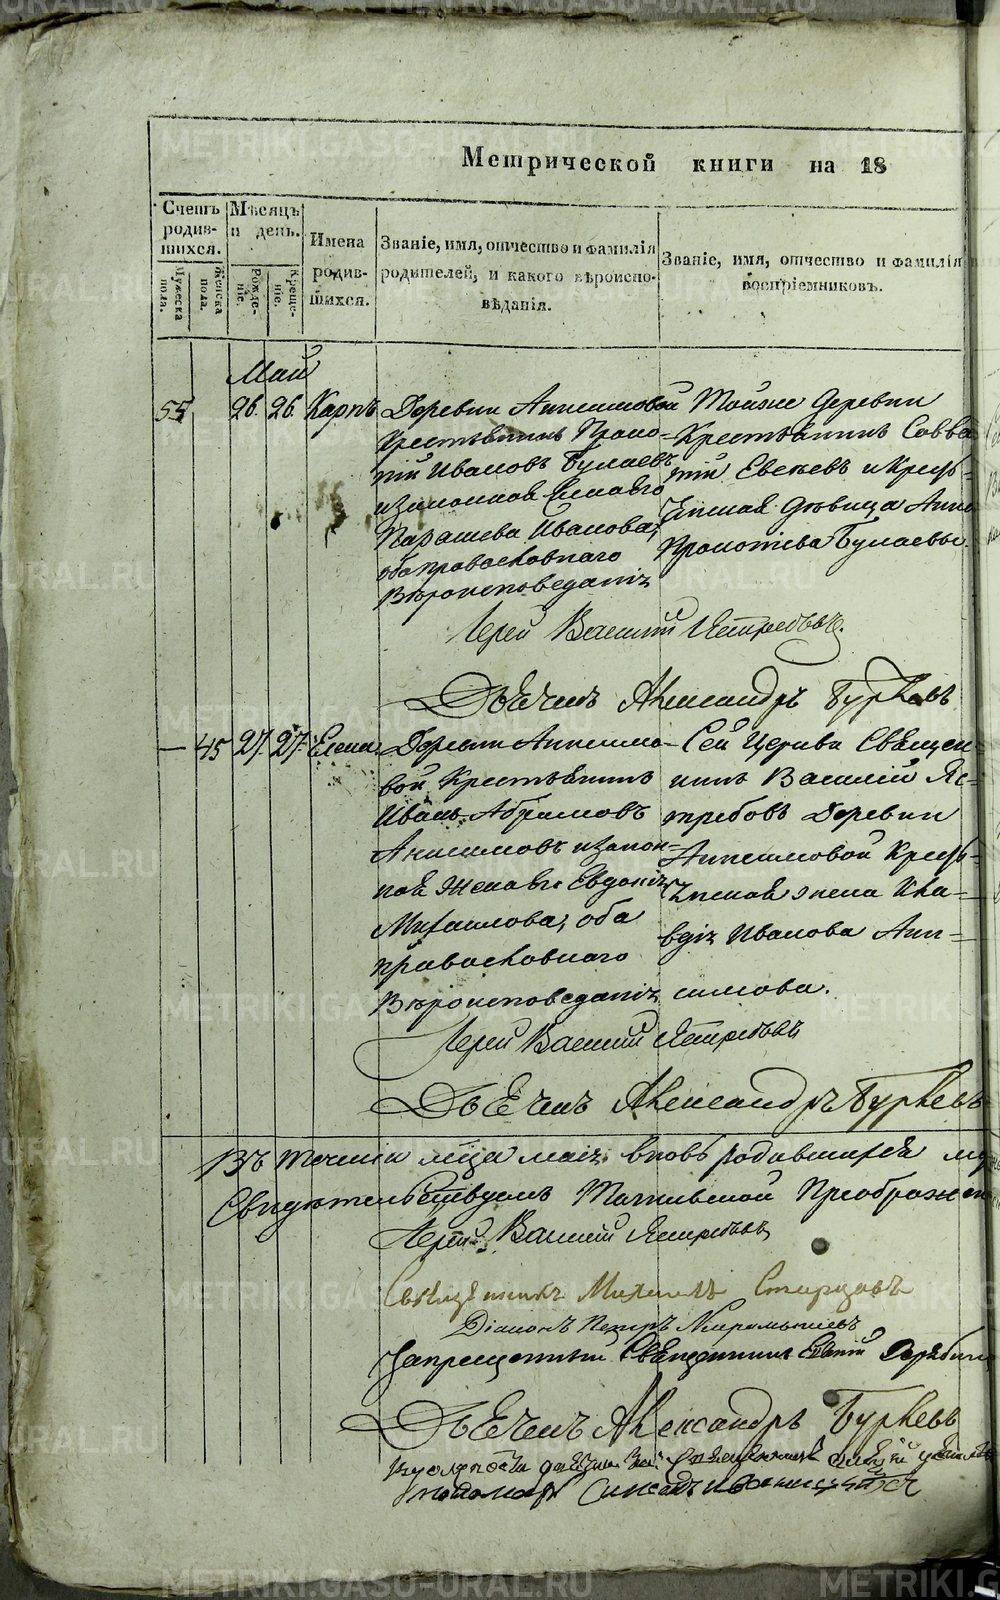 Метрической книги на 18
Счетъ родив- шихся.
Мужеска пола.
Женска пола.
Мѣсяцъ и день.
Рожде- ніе.
Креще- ніе.
Имена родив- шихся.
Званіе, имя, отчество и фамилія родителей, и какого вѣроиспо- вѣданія.
Званіе, имя, отчество и фамилія воспріемниковъ.
Май
55 26. 26. Карпъ
Деревни Анисимовой
Крестьянинъ Проко-
пій Ивановъ Булаевъ
и законная жена его
Ивановна,
оба православнаго
Вѣроисповеданія
Тойже деревни
Крестьянинъ Савва-
тій Евсѣевъ и Кресть-
янская дѣвица Анна
Прокопіева Булаевы.
Іерей Василій Ястребовъ.
Дьячекъ Александръ Бурцевъ
— 45 27. 27. Елена
Деревни Анисимо-
вой Крестьянинъ
Иванъ Абрамовъ
Анисимовъ и закон-
ная жена его Евдокія
Михаилова, оба
православнаго
Вѣроисповеданія
Сей Церкви Священ-
никъ Василій Яс-
требовъ Деревни
Анисимовой Кресть-
янская жена Кла-
вдія Иванова Ани-
симова.
Іерей Василій Ястребовъ
Дьячекъ Александръ Бурцевъ
Въ теченіи мѣсяца маія вновь родившихся
Свидѣтельствуемъ Преображен
Іерей Василій Ястребовъ
Священникъ Михаилъ Старцовъ
Діаконъ Петръ
Запрещенный Священникъ
Дьячекъ Александръ Бурцевъ
пономарь
METRIKI.GASU-URAL.RU